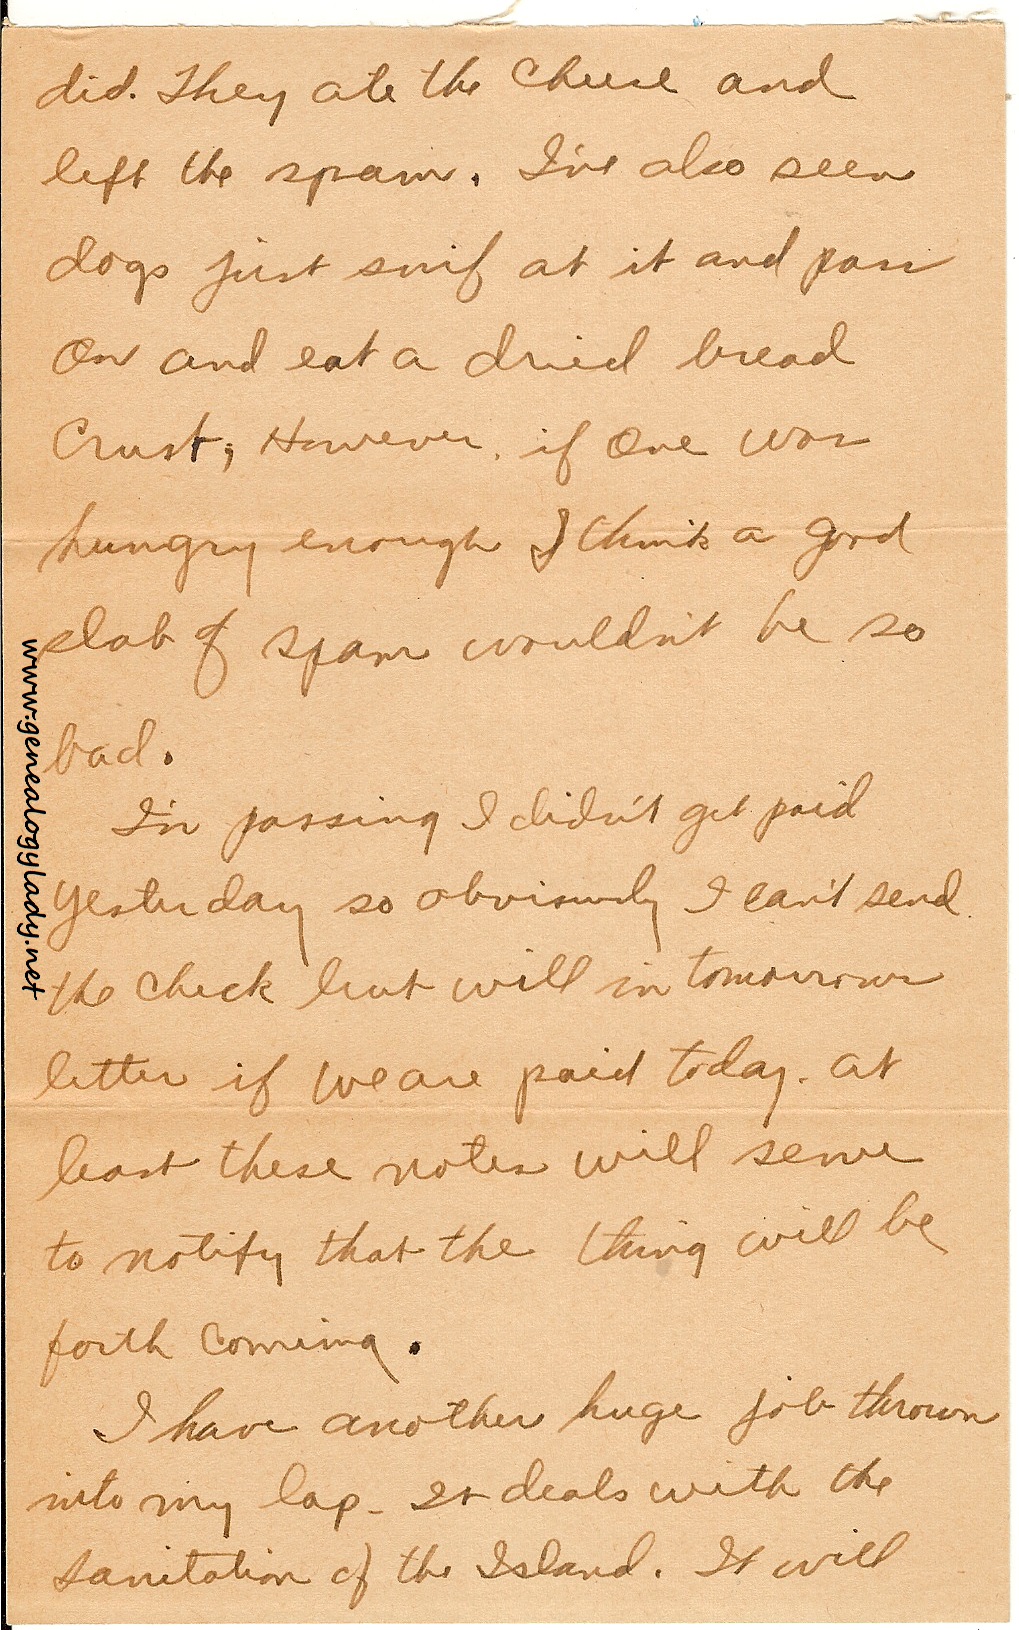 did. They ate the Cheese and
left the spam. I've also seen
dogs just snif at it and pass
On and eat a dried bread
Crust; However, if One was
hungry enough I think a good
slab of spam wouldn't be so
bad.
In passing I didn't get paid
yesterday so obviously I can't send
the check but will in tomorrows
letter if we are paid today. At
least these notes will serve
to notify that the thing will be
forth coming.
I have another huge job thrown
into my lap. It deals with the
sanitation of the Island. It will
www.genealogylady.net